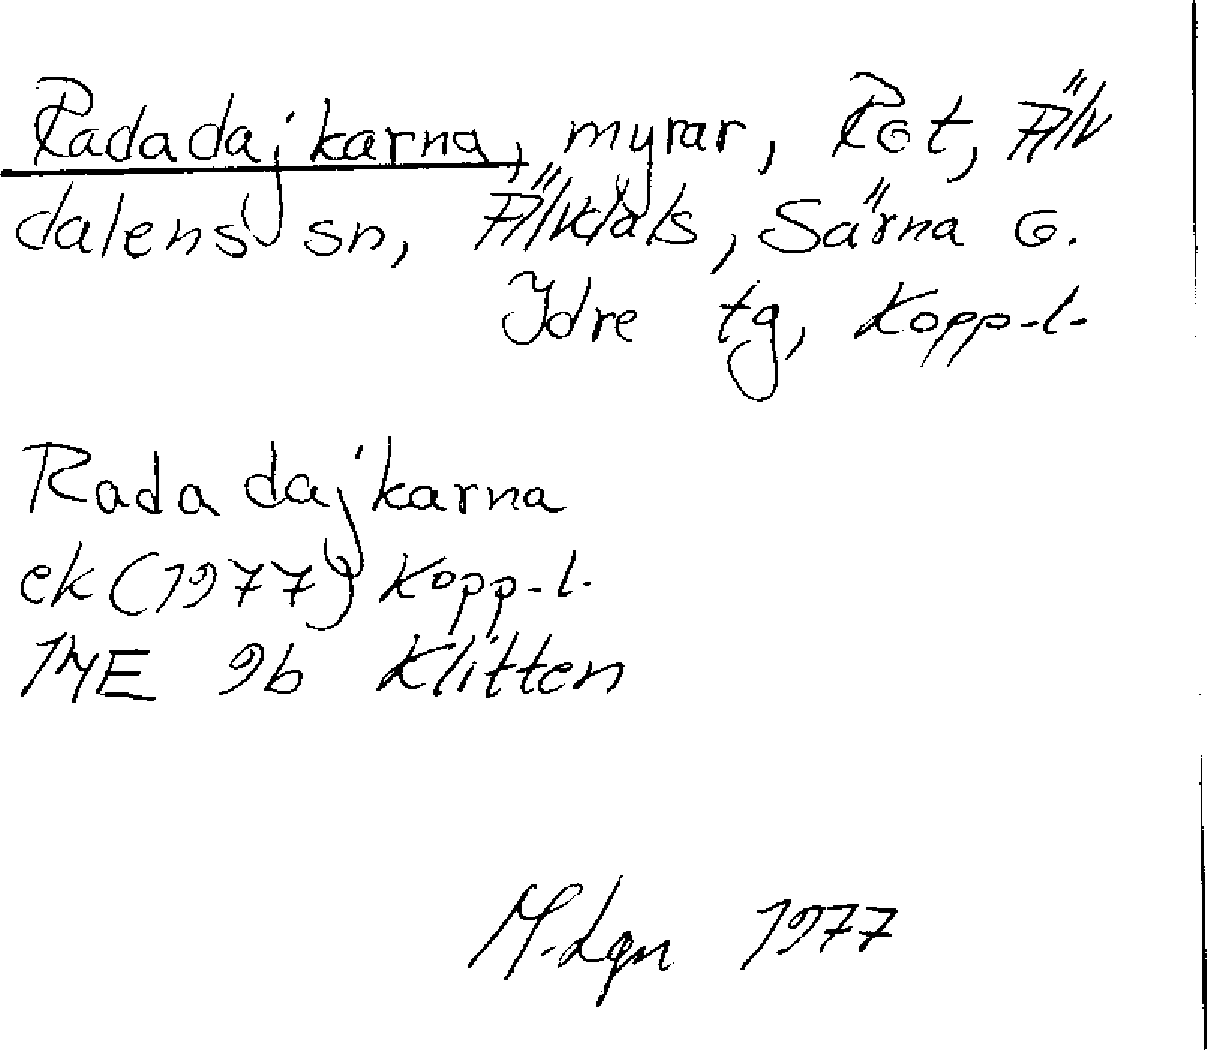 Radadajkarna, myrar, Rot, Älv
dalens sn, Älvdals, Särna o.
Idre tg, Kopp-l.
Rada dajkarna
ek (1977) Kopp-l.
14E 9b Klitten
M-Lgn 1977